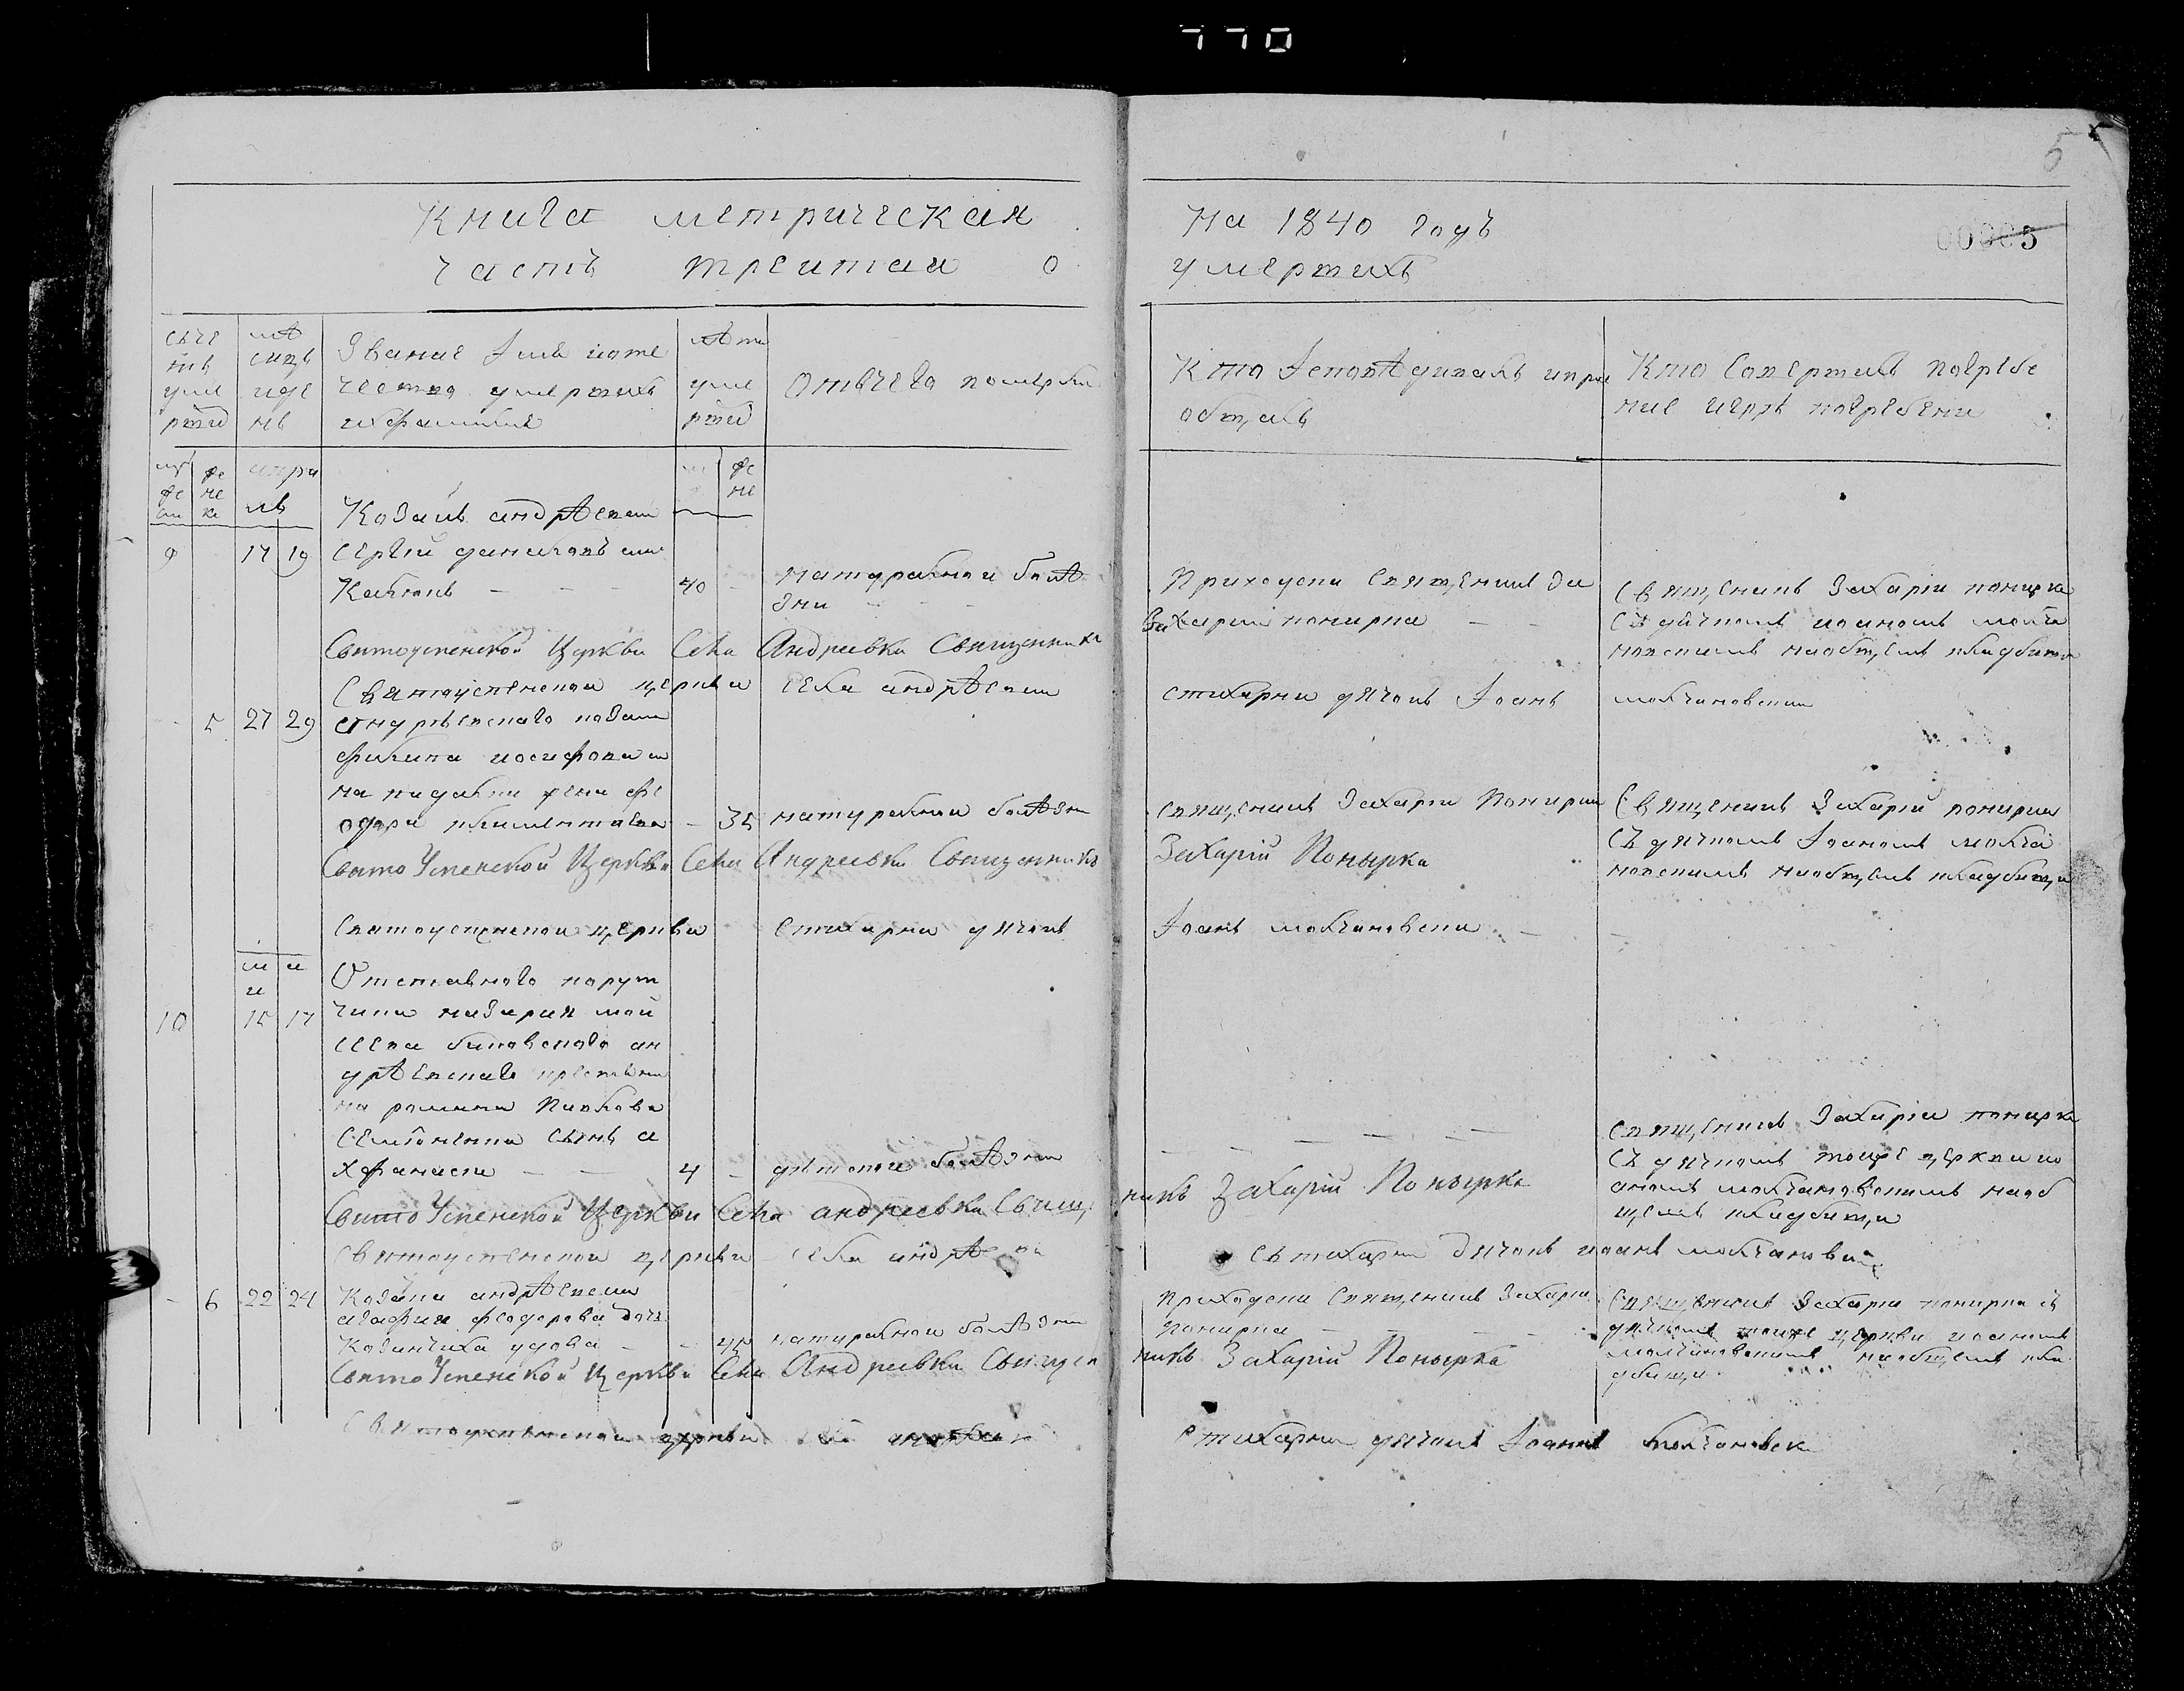 770
5
Книга метрическая
На 1840 годъ
00005
часть третая о
умершихъ
счетъ умершй
мѣсицъ иде нь
Званае Імя иоте
чество умершихъ
ифамилие
лѣта уме ршй
Отъчего померли
Кто Исповѣдивалъ ипри
общалъ
Кто Совершилъ погребе
ние игдѣ погребени
апри
ль
Козакъ андрѣевки
9 17 19 Сергій даниловъ
40
натуральнои болѣ
зни
Приходски священникъ За
Захарии понирка
Священикъ Захарии понирка
Съ дячкомъ иоаномъ молча
новскимъ наобщемъ кладбищи
Святоуспенской Церкви Села Андреевки Священникъ
Святоуспенскои церкви села андрѣевки
стихарни дячокъ Іоанъ молчановски
5 27 29 андрѣевскаго козака
филипа иосифова
жена фе
одора
35 натуральнои болѣзни
священикъ Захарии Понирка
Священикъ Захарій понирка
Съ дячкомъ Іоаномъ молча
новскимъ наобщемъ кладбищи
Свято Успенской Церкви Села Андреевки Священникъ Захарій Понырка
Святоуспенскои церкви стихарни дячокъ Іоанъ молчановски
ма и
Отставного порут
10 15 17 чика назария мои
сеева биковскаго ан
дрѣевскаго крестяни
на романа Павлова
Семіоненка синъ а
фанаси
4 дѣтскои болѣзни
священикъ Захарии понирка
Съ дячкомъ тоиже церкви ио
аномъ молчановскимъ наоб
щемъ кладбищи
Свято Успенской Церкви Села андреевки Свящ никъ Захарій Понырка
Святоуспенскои церкви села андрѣевки
стихарни дячокъ иоанъ молчановски
6 22 24 Козачка андрѣевки
агафия феодорова дочь
Козинчиха удова
45 натуральнои болѣзни
приходски Священикъ Захарии
понирка
Священикъ Захарии понирка съ
дячкомъ тоиже церкви иоаномъ
молчановскимъ наобщемъ кла
дбищи
Свято Успенской Церкви Села Андреевки Священ никъ Захарій Понырка
Святоуспенскои церкви
стихарни дячокъ Іоанъ молчановски